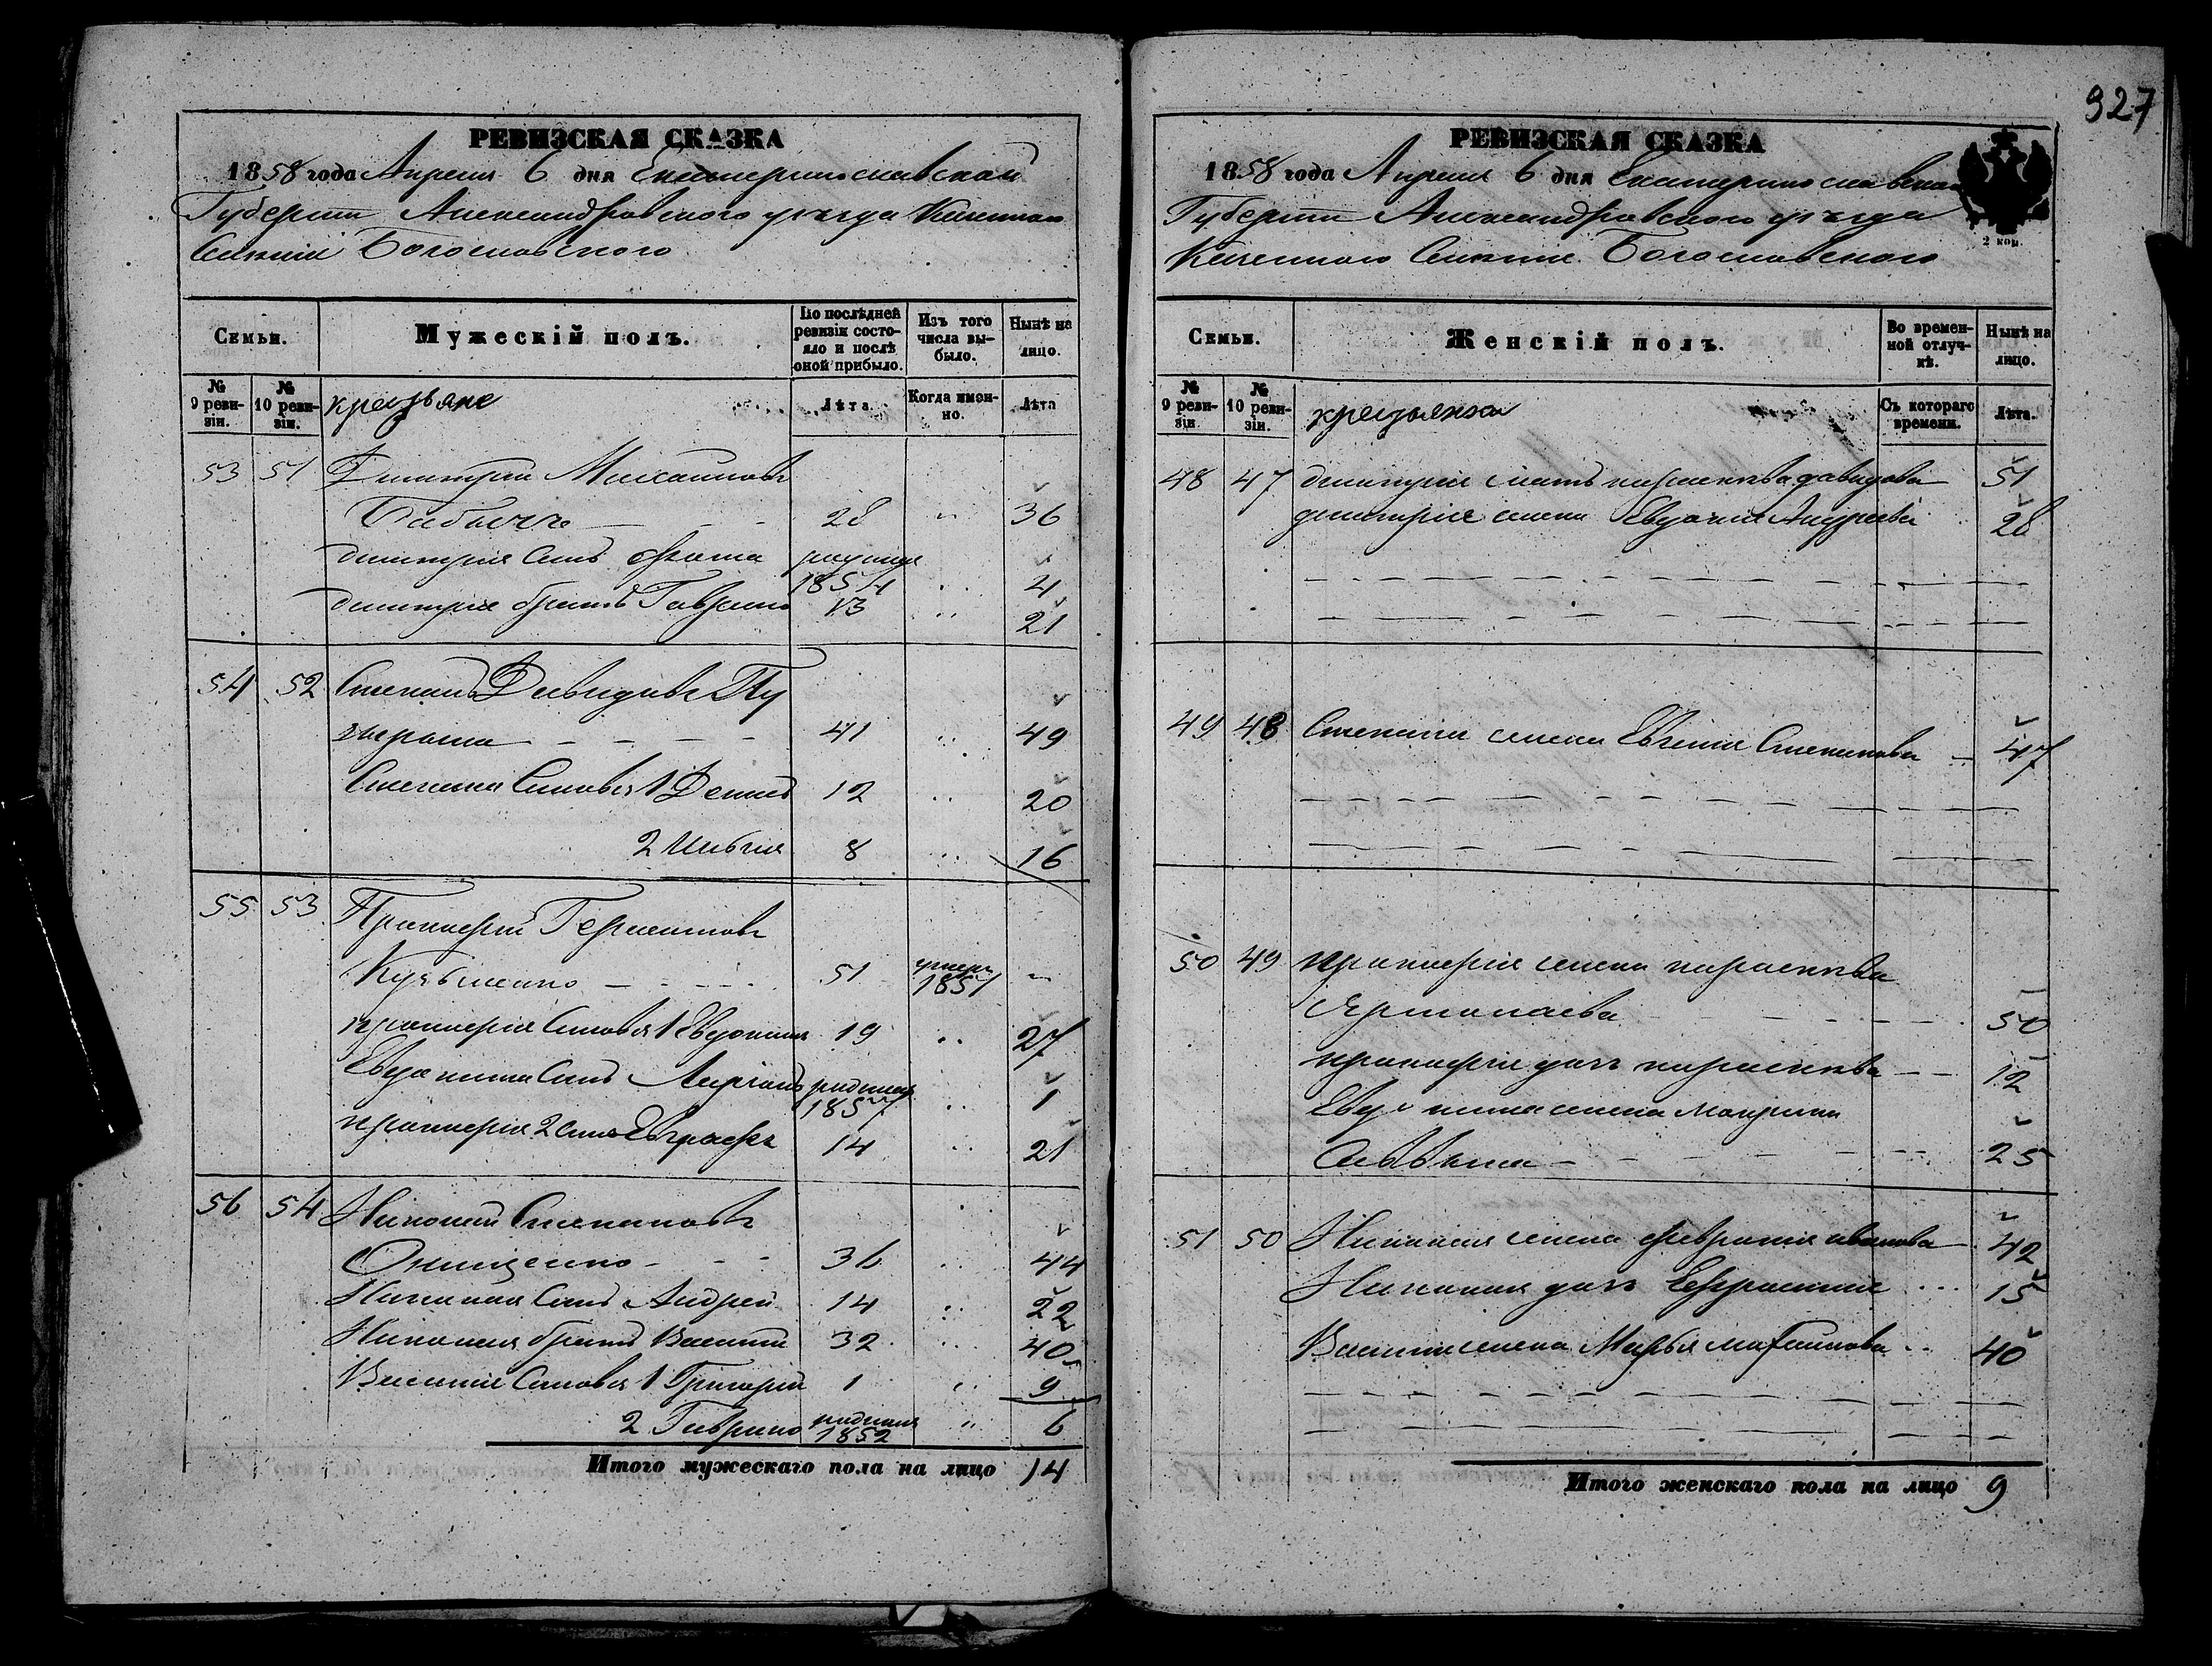 927
РЕВИЗСКАЯ СКАЗКА
1858 года Апреля 6 дня Екатеринославской
Губернии Александровского уезда Казенного
Селения Богословского
Семьи.
Мужескій полъ.
По послѣдней ревизіи состояло и послѣ оной прибыло.
Изъ того числа выбыло.
Нынѣ на лицо.
№ 9 ревизіи.
№ 10 ревизіи.
крестьяне
Лѣта.
Когда именно.
Лѣта
53 51 Димитрий Михаиловъ
Бабичъ 28 36
Димитрия Сынъ Фома родился 1854 4
Димитрия братъ Гаврило 13 21
54 52 Степанъ Давидовъ Пу
41 49
Степана Сыновья 1 Денис 12 20
2 8 16
55 53 Прокофий
Кузьменко 51 умеръ 1857
Прокофия Сыновья 1 Евдоким 19 27
Евдокима Сынъ родился 1857 1
Прокофия 2 Сынъ Евграфъ 14 21
56 54 Николай Степановъ
Онищенко 36 44
Николая Сынъ Андрей 14 22
Николая братъ Василий 32 40
Василия Сыновья 1 Григорий 1 9
2 Гаврило родился 1852 6
Итого мужескаго пола на лицо 14
РЕВИЗСКАЯ СКАЗКА
1858 года Апреля 6 дня Екатеринославской
Губернии Александровского уезда
Казенного Селения Богословского
2 коп.
Семьи.
Женскій полъ.
Во временной отлучкѣ.
Нынѣ на лицо.
№ 9 ревизіи.
№ 10 ревизіи.
Съ котораго времени.
Лѣта.
48 47 Димитрия мать параскева давидова 51
Димитрия жена Евдокия Андреева 28
49 48 Степана жена Евгения Степанова 47
50 49 Прокофия жена параскева
50
Прокофия дочь параскева 12
Евдокима жена
25
51 50 Николая жена Феврония иванова 42
Николая дочь Ефросиния 15
Василия жена Марья михаилова 40
Итого женскаго пола на лицо 9